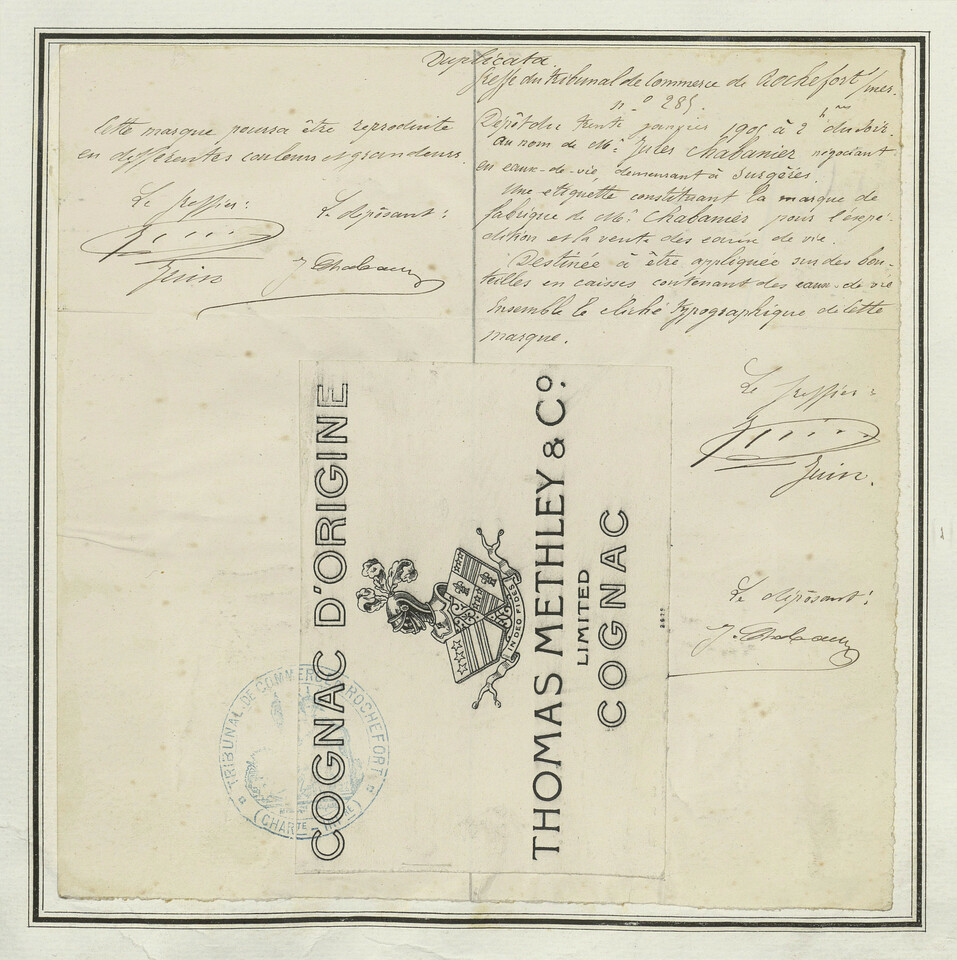 Duplicata
Greffe du tribunal de Commerce de Rochefort s/mer.
n.o 285.
Dépôt du trente janvier 1905 à 2 h du soir.
au nom de Mr. Jules Chabanier négociant
en eaux-de-vie, demeurant à Surgères.
Une etiquette constituant la marque de
fabrique de Mr. Chabanier pour l'expé-
dition et la vente des eaux de vie.
Destinée à être appliquée sur des bou-
teilles en caisses contenant des eaux-de vie
Ensemble le cliché typographique de cette
marque.
Le Greffier:
Juin.
Le déposant:
J. Chabanier
Cette marque pourra être reproduite
en différentes couleurs et grandeurs.
Le Greffier:
Juin
Le déposant:
J Chabanier
COGNAC D'ORIGINE
IN DEO FIDES
THOMAS METHLEY & Co.
LIMITED
COGNAC
TRIBUNAL DE COMMERCE ROCHEFORT
(CHARTE-INFRE)